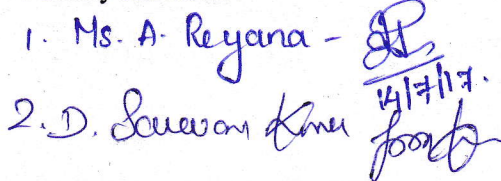 1. Ms. A. Reyana -
14/7/17.
2. D. Saravan Kumar